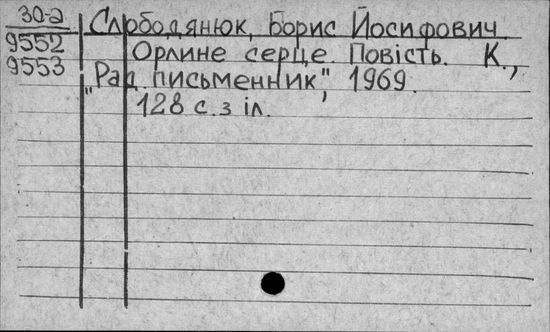 30-а Слободянюк, Борис Йосифович.
9552 Орлине серце. Повість. К.,
9553 "Рад. письменник", 1969.
128 с. з іл.